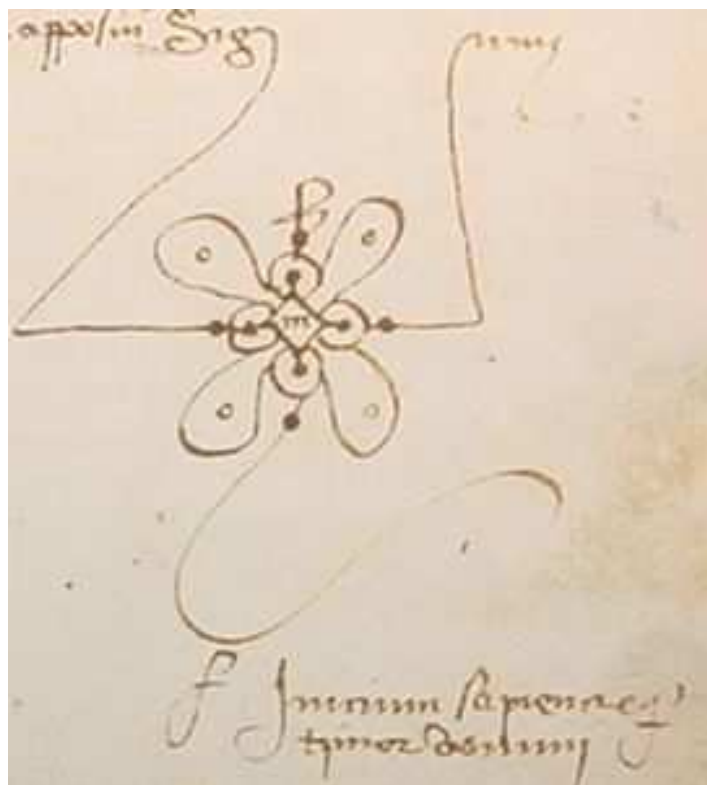 apposui Sig num
Inicium sapiencie est
timor domini